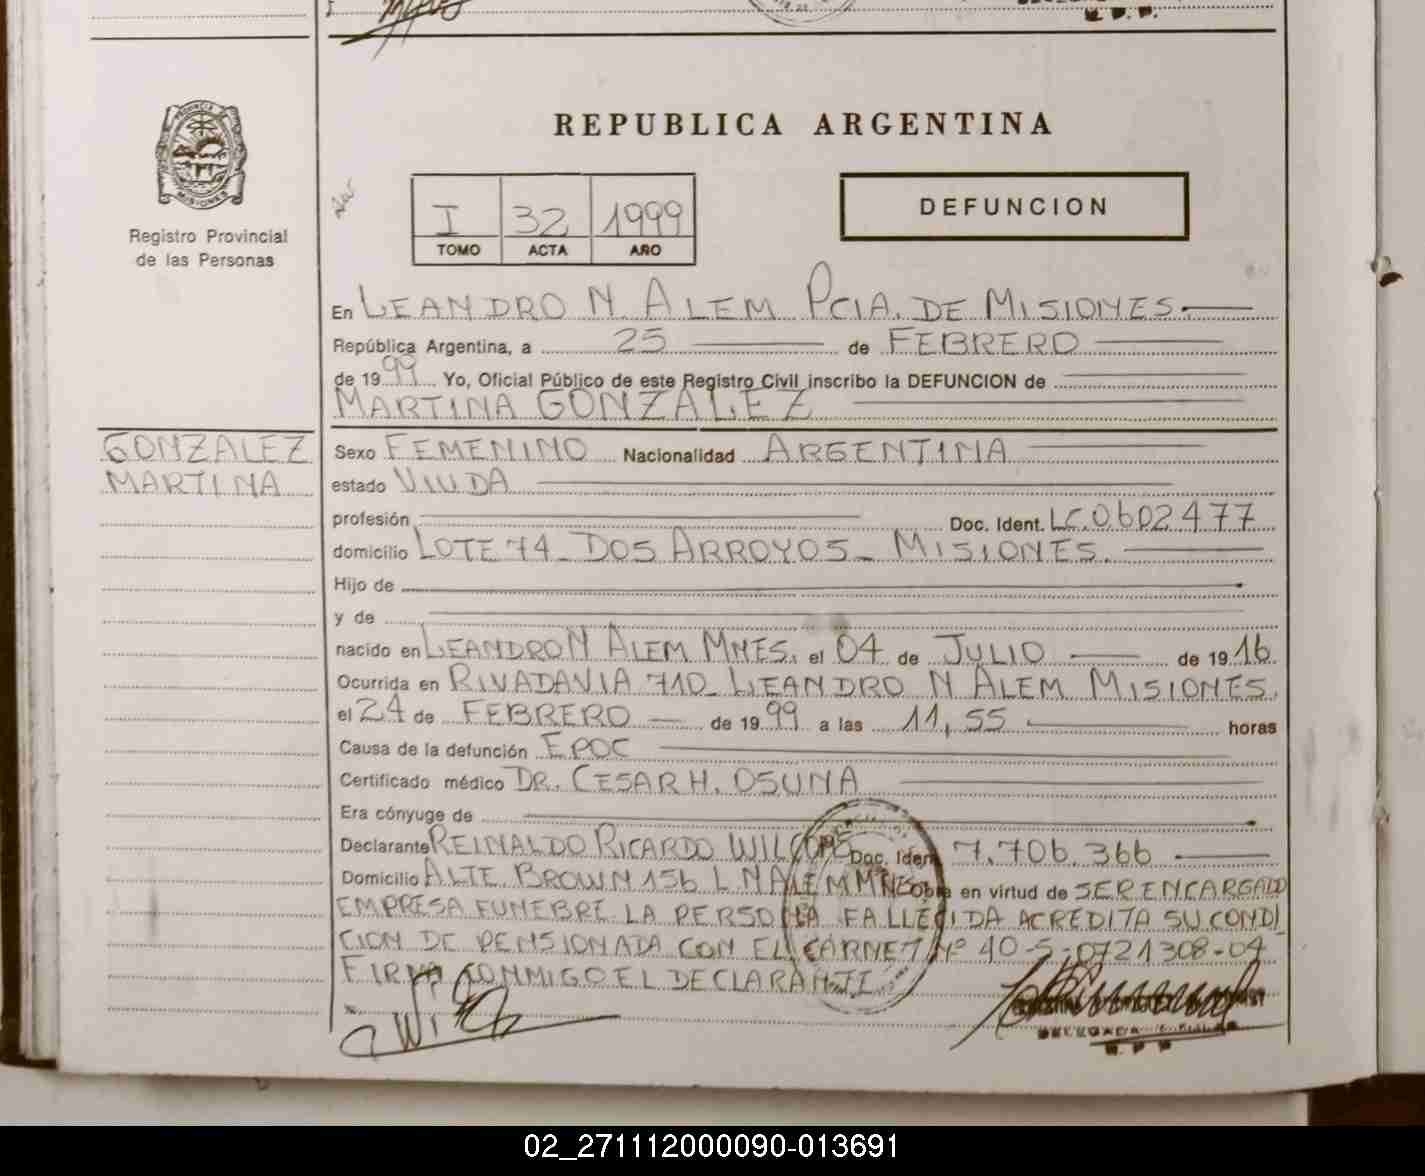 REPUBLICA ARGENTINA
PROVINCIA DE
MISIONES
Registro Provincial
de las Personas
I 32 1999
TOMO ACTA AÑO
DEFUNCION
En LEANDRO N. ALEM PCIA. DE MISIONES.
República Argentina, a 25 de FEBRERO
de 1999 Yo, Oficial Público de este Registro Civil inscribo la DEFUNCION de
MARTINA GONZALEZ
GONZALEZ
MARTINA
Sexo FEMENINO Nacionalidad ARGENTINA
estado VIUDA
profesión Doc. Ident. LC.0602477
domicilio LOTE 74_ DOS ARROYOS_ MISIONES.
Hijo de
y de
nacido en LEANDRO N ALEM MNES. el 04 de JULIO de 1916
Ocurrida en RIVADAVIA 710_ LEANDRO N ALEM MISIONES.
el 24 de FEBRERO de 1999 a las 11,55 horas
Causa de la defunción EPOC
Certificado médico DR. CESAR H. OSUNA
Era cónyuge de
Declarante REINALDO RICARDO Doc. Ident. 7.706.366
Domicilio ALTE BROWN 156 L N ALEM MNES obra en virtud de SER ENCARGADO
EMPRESA FUNEBRE LA PERSONA FALLECIDA ACREDITA SU CONDI
CION DE PENSIONADA CON EL CARNET Nº 40-5-0721308-04
FIRMA CONMIGO EL DECLARANTE
02_271112000090-013691